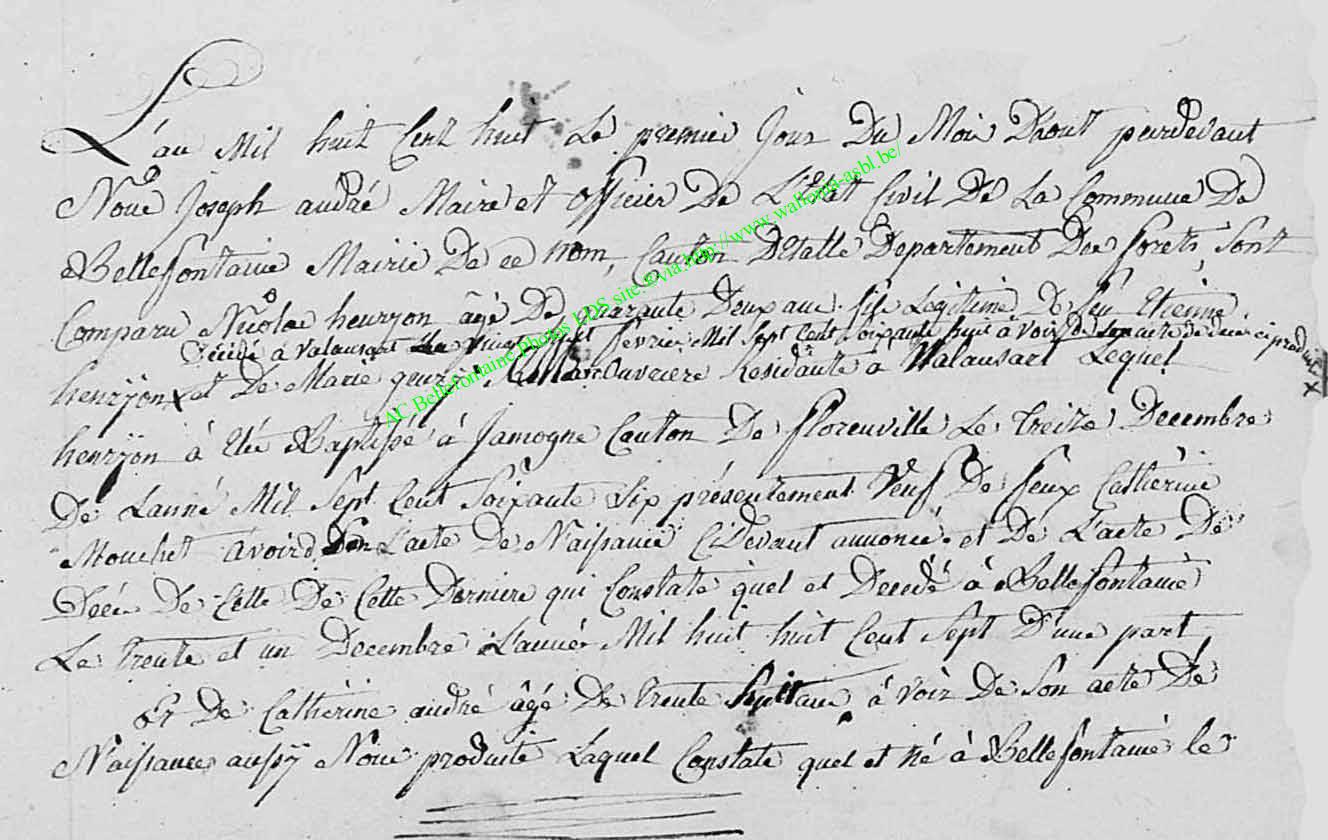 L'an Mil huit Cent huit Le premier Jour Du Moi Daout pardevant
Nous Joseph andré Maire et officier De L'Etat Civil De La Commune De
Bellefontaine Mairie De ce nom, Canton Detalle Departement Des forets, Sont
Comparu Nicolas henryon âgé De quarante Deux ans fils Legitime De feu Etienne
Décédé à Valansart Le vingt sept fevrier Mil Sept Cent soixante huit à voir de son acte de decé ci produit X
henryon x et De Marie Manouvriere Residante à Valansart Lequel
henryon à Eté Baptissé à Jamogne Canton De florenville Le Treize Decembre
De Lanné Mil Sept Cent Soixante Six présentement Veuf De feux Catherine
Mouchet avoird Son L'acte De Naissance Cidevant annoncé et De L'acte De
Décé De Celle De Cette Derniere qui Constate quel et Décédé à Bellefontaine
Le trente et un Decembre L'année Mil huit huit Cent Sept D'une part
Et De Catherine andré âgé De Trente Sept ans à voir De Son acte De
Naissance aussy Nous produite Laquel Constate quel et Né à Bellefontaine le
AC Bellefontaine Photos LDS site ©via http://www.wallonia-asbl.be/